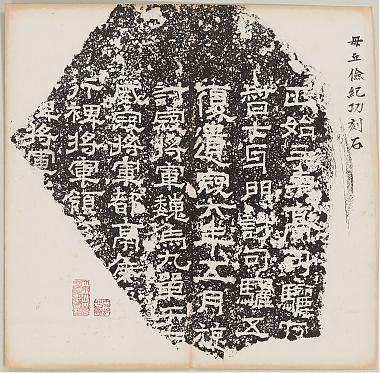 毌丘儉紀功刻石
正始三年高句驪反
督七牙門討句驪五
復遺寇六年五月旋
討寇將軍魏烏丸單于
威寇將軍都亭侯
行裨將軍領
裨將軍